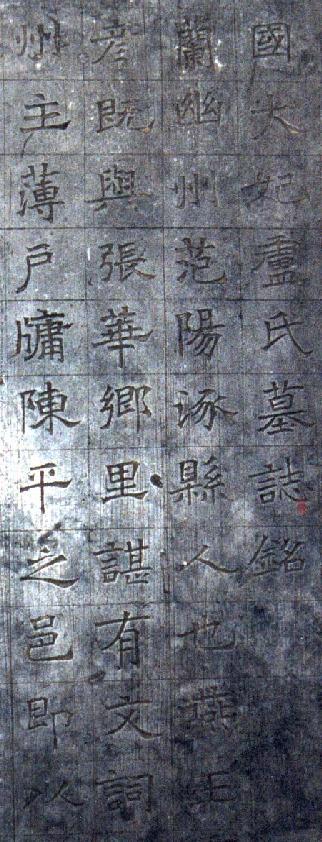 國大妃盧氏墓誌銘
蘭幽州范陽涿縣人也燕王
彦既與張華鄉里諶有文詞
州主薄戶牖陳平之邑即以